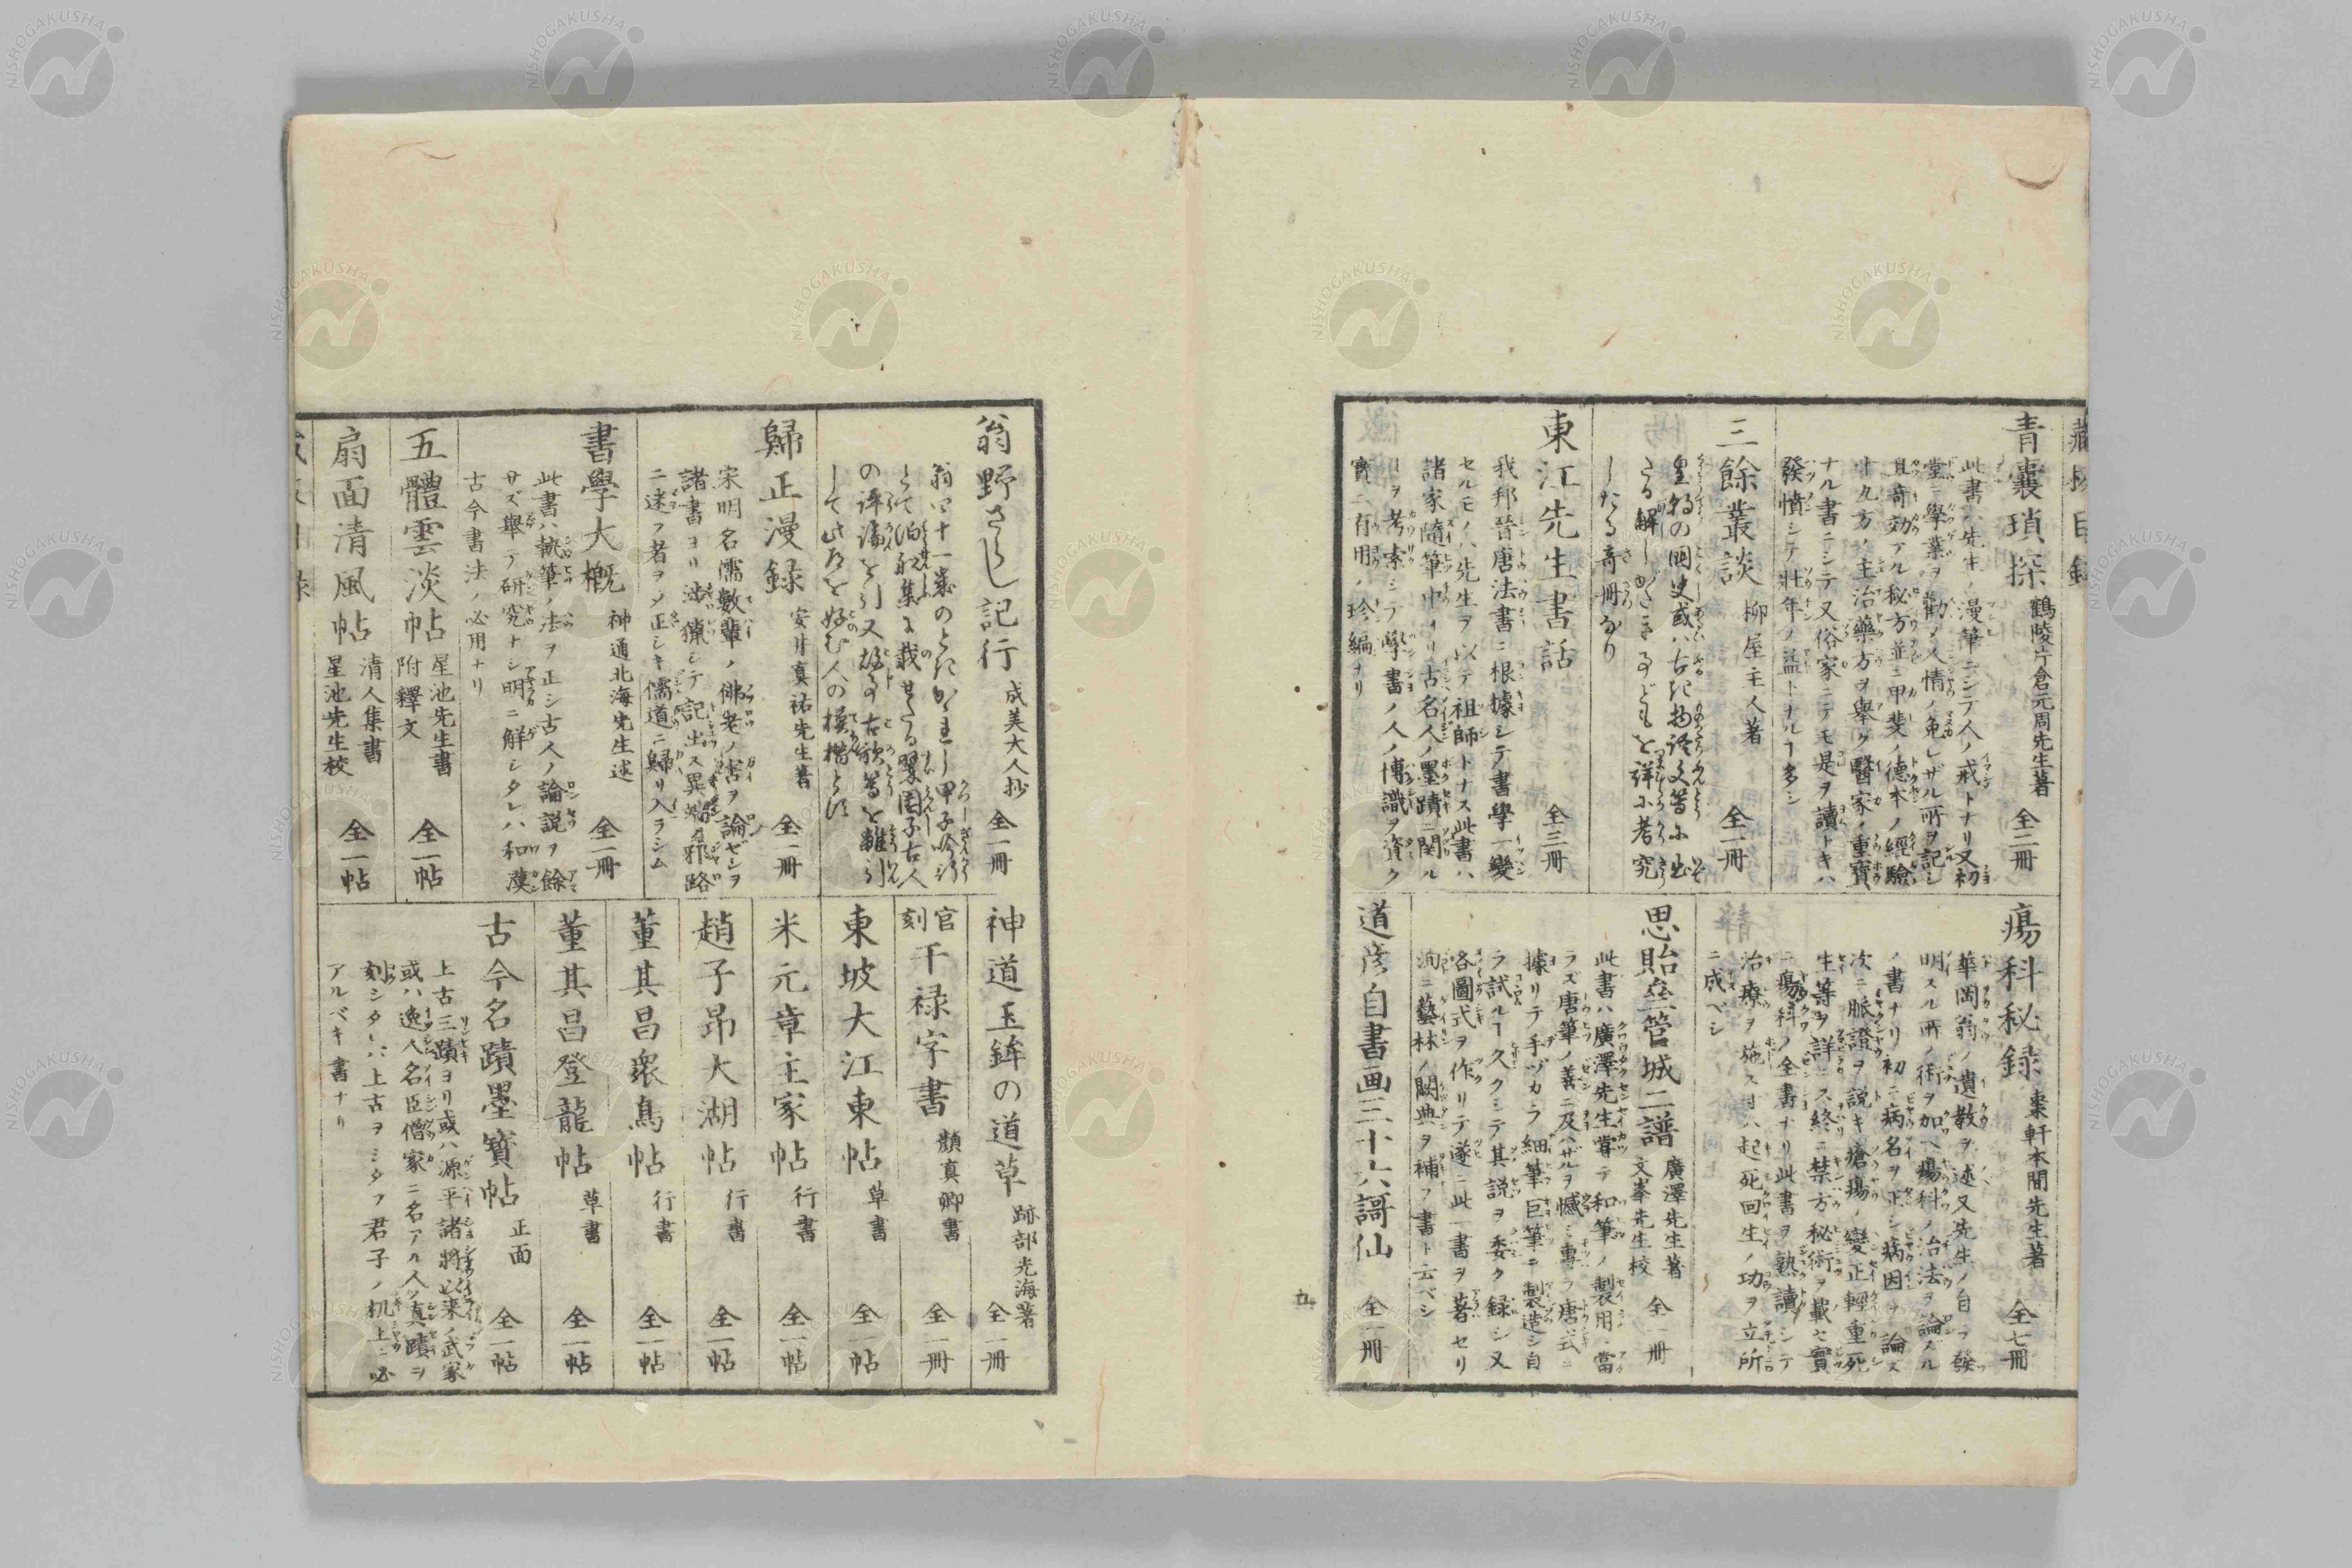 青囊瑣探 鶴陵片倉元周先生著 全二冊
此書ハ先生ノ漫筆ニシテ人ノ戒トナリ又初
堂ニ學業ヲ勸メ人情ノ免レザル所ヲ記シ
且奇効アル秘方並ニ甲斐ノ德本ノ經驗
十九方ノ主治藥方ヲ舉ク醫家ノ重寶
ナル書ニシテ又俗家ニテモ是ヲ讀トキハ
發憤シテ壯年ノ益トナルヿ多シ
三餘叢談 柳屋主人著 全一冊
皇朝の國史或ハ古き物語文等に出
たる解しがたき事どもを詳に考究
したる奇冊なり
東江先生書話 全三冊
我邦晉唐法書ニ根據シテ書學一變
セルモノハ先生ヲ以テ祖師トナス此書ハ
諸家隨筆中ヨリ古名人ノ墨蹟ニ関ル
ヿヲ考索シテ學書ノ人ノ博識ヲ資ク
實ニ有用ノ珍編ナリ
瘍科秘録 棗軒本間先生著 全七冊
華岡翁ノ遺教ヲ述又先生ノ自ラ發
明スル所ノ術ヲ加ヘ瘍科ノ治法ヲ論スル
ノ書ナリ初ニ病名ヲ正シ病因ヲ論ズ
次ニ脈證ヲ説キ瘡瘍ノ變正輕重死
生等ヲ詳ニス終ニ禁方秘術ヲ載セ實
ニ瘍科ノ全書ナリ此書ヲ熟讀シテ
治療ヲ施ス日ハ起死回生ノ功ヲ立所
ニ成ベシ
思貽堂管城二譜 廣澤先生著 文峯先生校 全一冊
此書ハ廣澤先生嘗テ和筆ノ製用ニ當
ラズ唐筆ノ善ニ及ハザルヲ憾ミ專ラ唐式ニ
據リテ手ヅカラ細筆巨筆ヲ製造シ自
ラ試ルヿ久クシテ其説ヲ委ク録シ又
各圖式ヲ作リテ遂ニ此一書ヲ著セリ
洵ニ藝林ノ闕典ヲ補フ書ト云ベシ
道彦自書画三十六謌仙 全一冊
五
翁野ざらし記行 成美大人抄 全一冊
翁四十一歳のとき
歸正漫録 安井真祐先生著 全一冊
宋明名儒數輩ノ佛老ノ害ヲ論ゼシヲ
諸書ヨリ渉獵シテ記出ス異端邪路
ニ迷フ者ヲシテ正シキ儒道ニ歸リ入ラシム
書學大概 神通北海先生述 全一冊
此書ハ執筆ノ法ヲ正シ古人ノ論説ヲ餘
サズ舉テ研究ナシ明ニ解シタレハ和漢
古今書法ノ必用ナリ
五體雲淡帖 星池先生書 附釋文 全一帖
扇面清風帖 清人集書 星池先生校 全一帖
神道玉鉾の道草 跡部光海著 全一冊
官刻 干禄字書 顏真卿書 全一冊
東坡大江東帖 草書 全一帖
米元章主家帖 行書 全一帖
趙子昂大湖帖 行書 全一帖
董其昌衆鳥帖 行書 全一帖
董其昌登龍帖 草書 全一帖
古今名蹟墨寶帖 正面 全一帖
上古三蹟ヨリ或ハ源平諸將以来ノ武家
或ハ逸人名臣僧家ニ名アル人ノ真蹟ヲ
刻シタレハ上古ヲシタフ君子ノ机上ニ必
アルベキ書ナリ
NISHOGAKUSHA